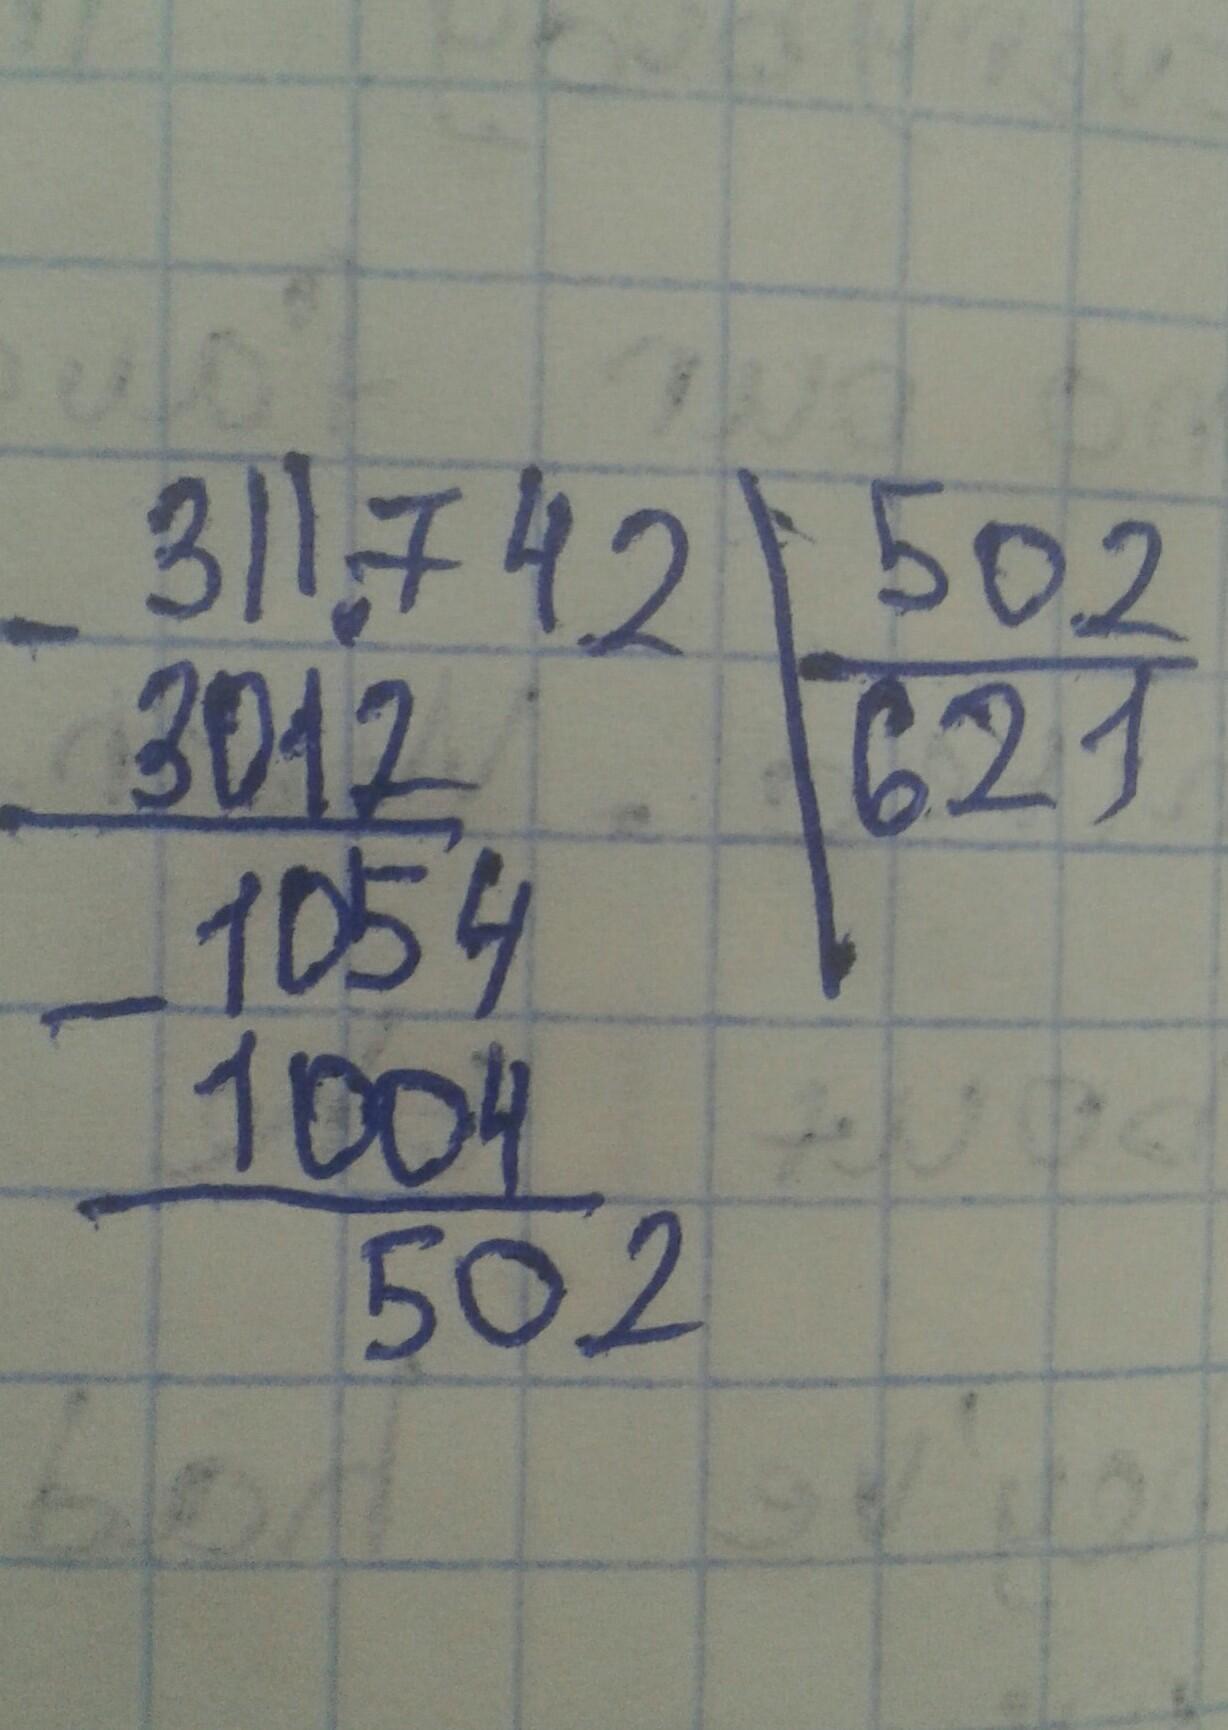 311.742 502
- 3012 621
1054
- 1004
502